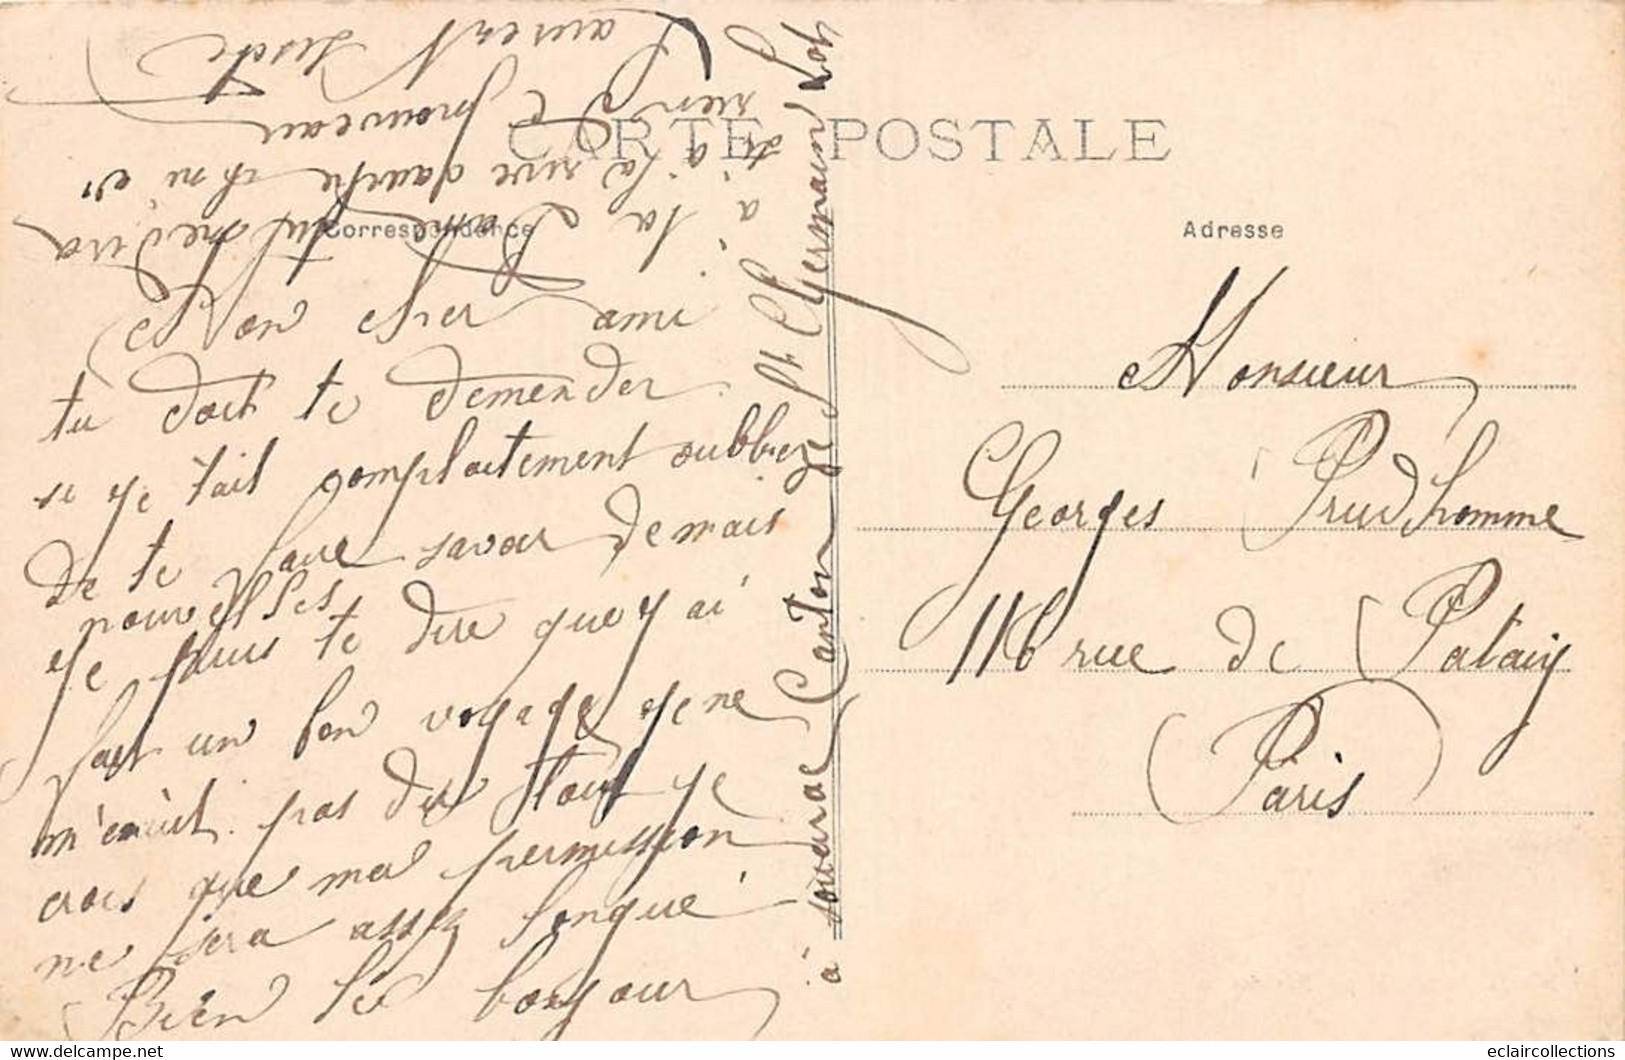 CARTE POSTALE
Correspondance
Adresse
Mon cher ami
tu doit te demender
si je tait complaitement oubblier
de te faire savoir de mais
nouvelles
je puis te dire que j'ai
fait un bon voyage je ne
m'enuit pas du tout je
crois que ma permission
ne sera assez longue
Bien le bonjour
à la Dame
à la rive gauche
rien de nouveau
Laurent
à Canton de St Germain
Monsieur
Georges Prudhomme
116 rue de Patay
Paris
eclaircollections